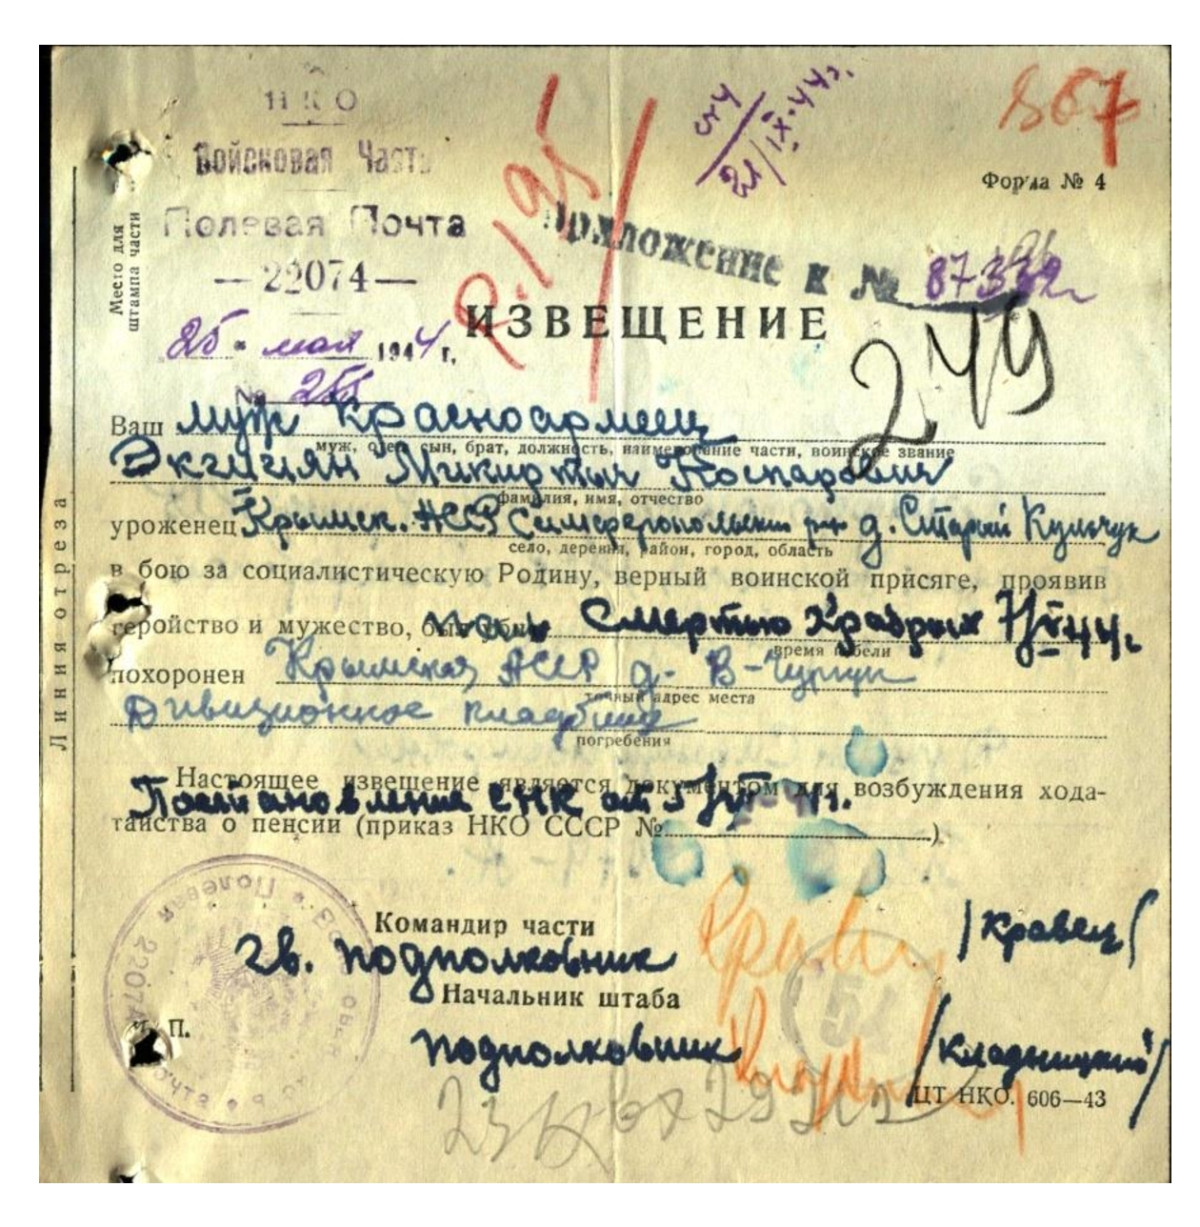 НКО
Войсковая Часть
Полевая Почта
— 22074 —
Место для штампа части
25 " мая 1944 г.
№
Р.195
21/IX.44г.
867
Форма № 4
Приложение к №
ИЗВЕЩЕНИЕ
249
Ваш муж Красноармеец
муж, отец, сын, брат, должность, наименование части, воинское звание
Экгициян Микиртич Коспарович
фамилия, имя, отчество
уроженец Крымск. АССР Симферопольский р-н д. Старый Кульчук
село, деревня, район, город, область
в бою за социалистическую Родину, верный воинской присяге, проявив
геройство и мужество, был убит Смертью Храбрых 7/V 44г
время гибели
похоронен Крымская АССР д. В-Чургун
точный адрес места
Дивизионное кладбище
погребения
Линия отреза
Настоящее извещение является документом для возбуждения хода-
Постановление СНК от 5/VI-41.
тайства о пенсии (приказ НКО СССР № )
Командир части
гв. подполковник /Кравец/
Начальник штаба
М. П.
подполковник /Кладницкий/
Полевая Почта 22074
54
ЦТ НКО. 606—43